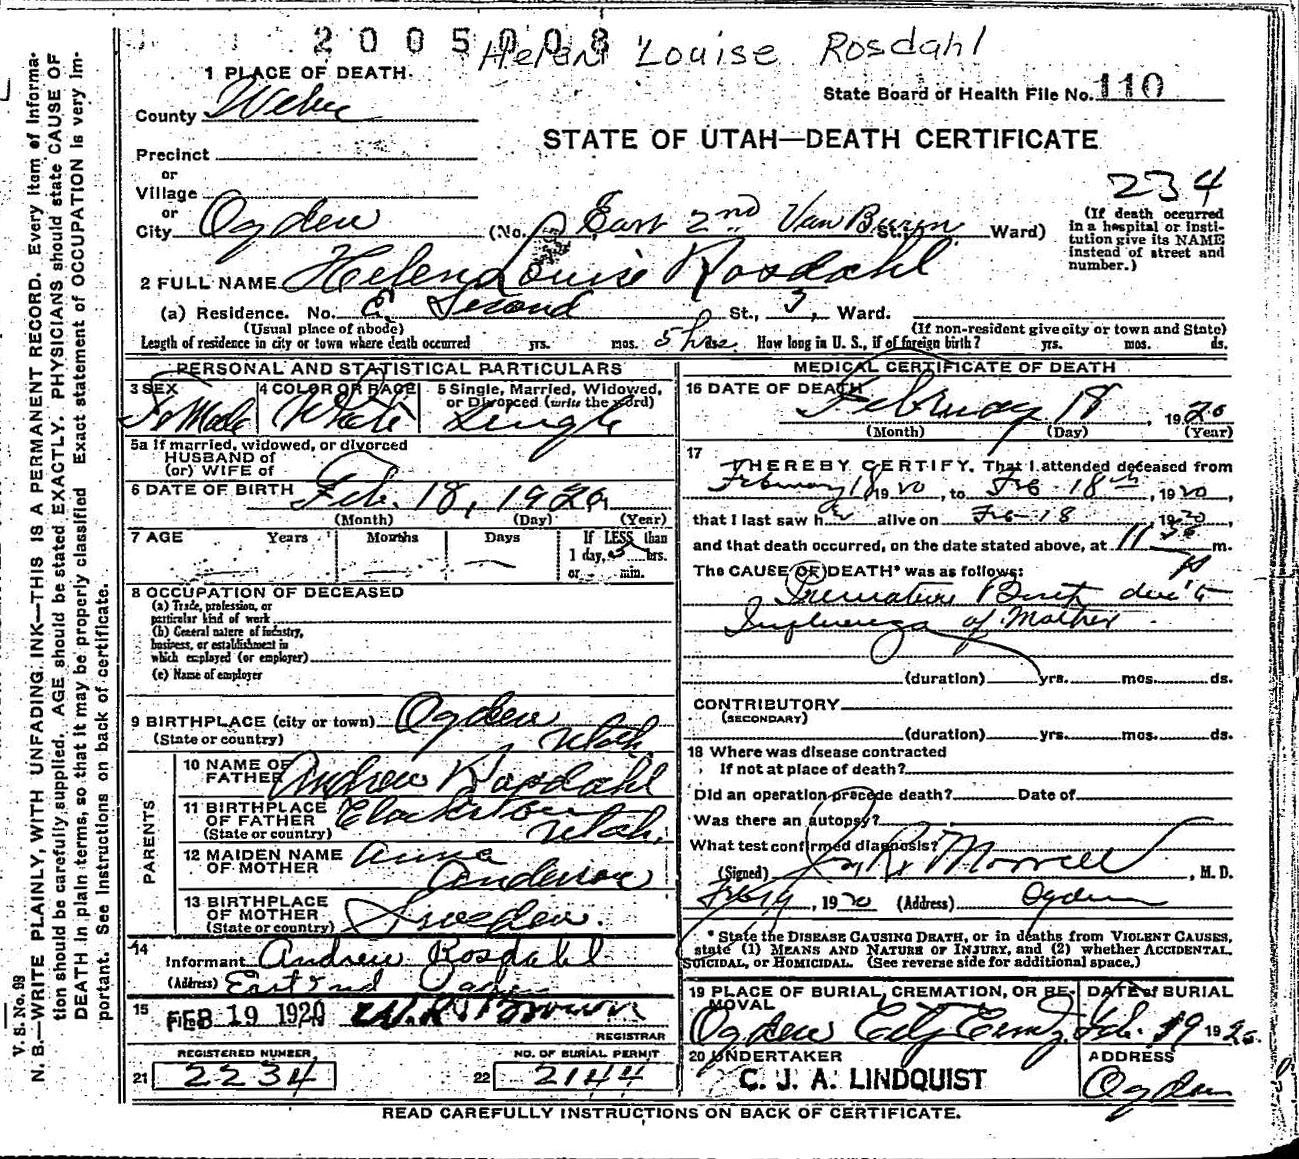 2005008
Helen Louise Rosdahl
1 PLACE OF DEATH.
State Board of Health File No. 110
County Weber
STATE OF UTAH—DEATH CERTIFICATE
Precinct
or
Village
234
or
City Ogden (No. East 2nd Van Buren St. Ward)
(If death occurred in a hospital or institution give its NAME instead of street and number.)
2 FULL NAME Helen Louise Rosdahl
(a) Residence. No. E. Second St., 3, Ward.
(Usual place of abode) (If non-resident give city or town and State)
Length of residence in city or town where death occurred yrs. mos. 5 hrs. ds. How long in U. S., if of foreign birth? yrs. mos. ds.
PERSONAL AND STATISTICAL PARTICULARS
3 SEX 4 COLOR OR RACE 5 Single, Married, Widowed,
or Divorced (write the word)
Female White Single
5a If married, widowed, or divorced
HUSBAND of
(or) WIFE of
6 DATE OF BIRTH Feb. 18, 1920
(Month) (Day) (Year)
7 AGE Years Months Days If LESS than
1 day, 5 hrs.
or min.
8 OCCUPATION OF DECEASED
(a) Trade, profession, or
particular kind of work
(b) General nature of industry,
business, or establishment in
which employed (or employer)
(c) Name of employer
9 BIRTHPLACE (city or town) Ogden
(State or country) Utah
PARENTS
10 NAME OF
FATHER Andrew Rosdahl
11 BIRTHPLACE
OF FATHER Clarkston
(State or country) Utah.
12 MAIDEN NAME
OF MOTHER Anna
Anderson
13 BIRTHPLACE
OF MOTHER
(State or country) Sweden.
14
Informant Andrew Rosdahl
(Address) East 2nd
15 Filed FEB 19 1920
REGISTRAR
REGISTERED NUMBER NO. OF BURIAL PERMIT
21 2234 22 2144
MEDICAL CERTIFICATE OF DEATH
16 DATE OF DEATH
February 18, 1920
(Month) (Day) (Year)
17
I HEREBY CERTIFY, That I attended deceased from
February 18 1920, to Feb-18th, 1920,
that I last saw her alive on Feb-18 1920
and that death occurred, on the date stated above, at 11 30 m.
P
The CAUSE OF DEATH* was as follows:
Premature Birth due to
Influenza of Mother
(duration) yrs. mos. ds.
CONTRIBUTORY
(SECONDARY)
(duration) yrs. mos. ds.
18 Where was disease contracted
If not at place of death?
Did an operation precede death? Date of
Was there an autopsy?
What test confirmed diagnosis?
(Signed) Jn. R. Morrell, M. D.
Feb 19, 1920 (Address) Ogden
* State the DISEASE CAUSING DEATH, or in deaths from VIOLENT CAUSES,
state (1) MEANS AND NATURE OF INJURY, and (2) whether ACCIDENTAL,
SUICIDAL, or HOMICIDAL. (See reverse side for additional space.)
19 PLACE OF BURIAL, CREMATION, OR RE- DATE of BURIAL
MOVAL
Ogden City Cemty Feb. 19 1920
20 UNDERTAKER ADDRESS
C. J. A. LINDQUIST Ogden
READ CAREFULLY INSTRUCTIONS ON BACK OF CERTIFICATE.
V. S. No. 98
N. B.—WRITE PLAINLY, WITH UNFADING INK—THIS IS A PERMANENT RECORD. Every item of Informa-
tion should be carefully supplied. AGE should be stated EXACTLY. PHYSICIANS should state CAUSE OF
DEATH in plain terms, so that it may be properly classified Exact statement of OCCUPATION is very im-
portant. See Instructions on back of certificate.